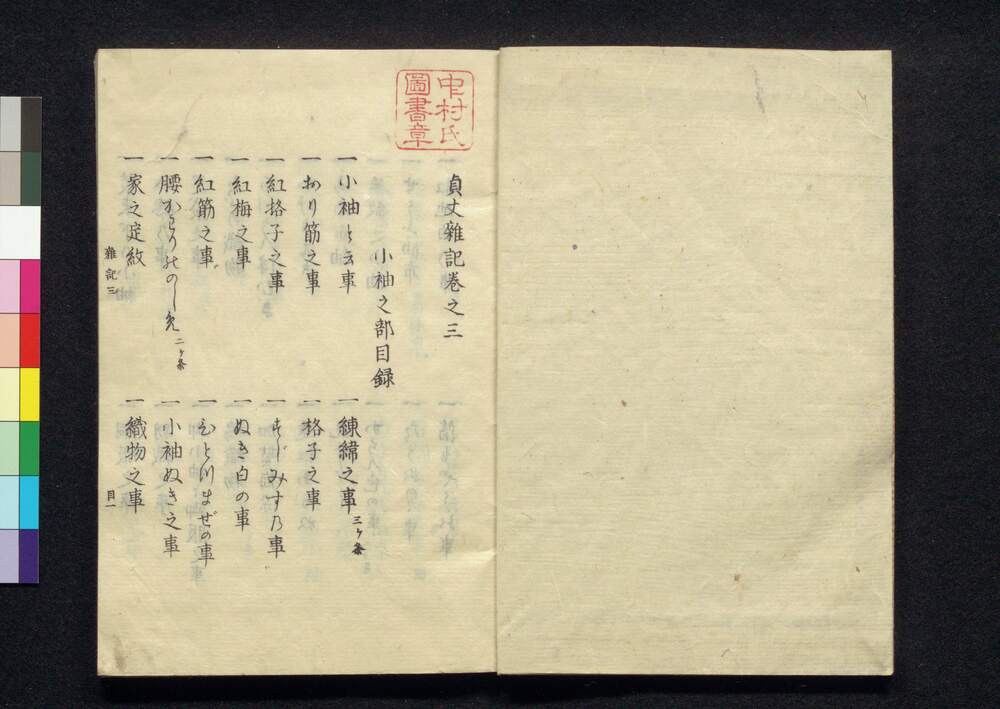 中村氏
圖書章
貞丈雜記卷之三
小袖之部目録
一 小袖と云事
一 練緯之事 三ヶ条
一 おり筋之事
一 格子之事
一 紅格子之事
一 すじみす乃事
一 紅梅之事
一 ぬき白の事
一 紅筋之事
一 むら川ませの事
一 腰かはりのしめ 二ヶ条
一 小袖ぬき之事
一 家之定紋
一 織物之事
雜記三
目一